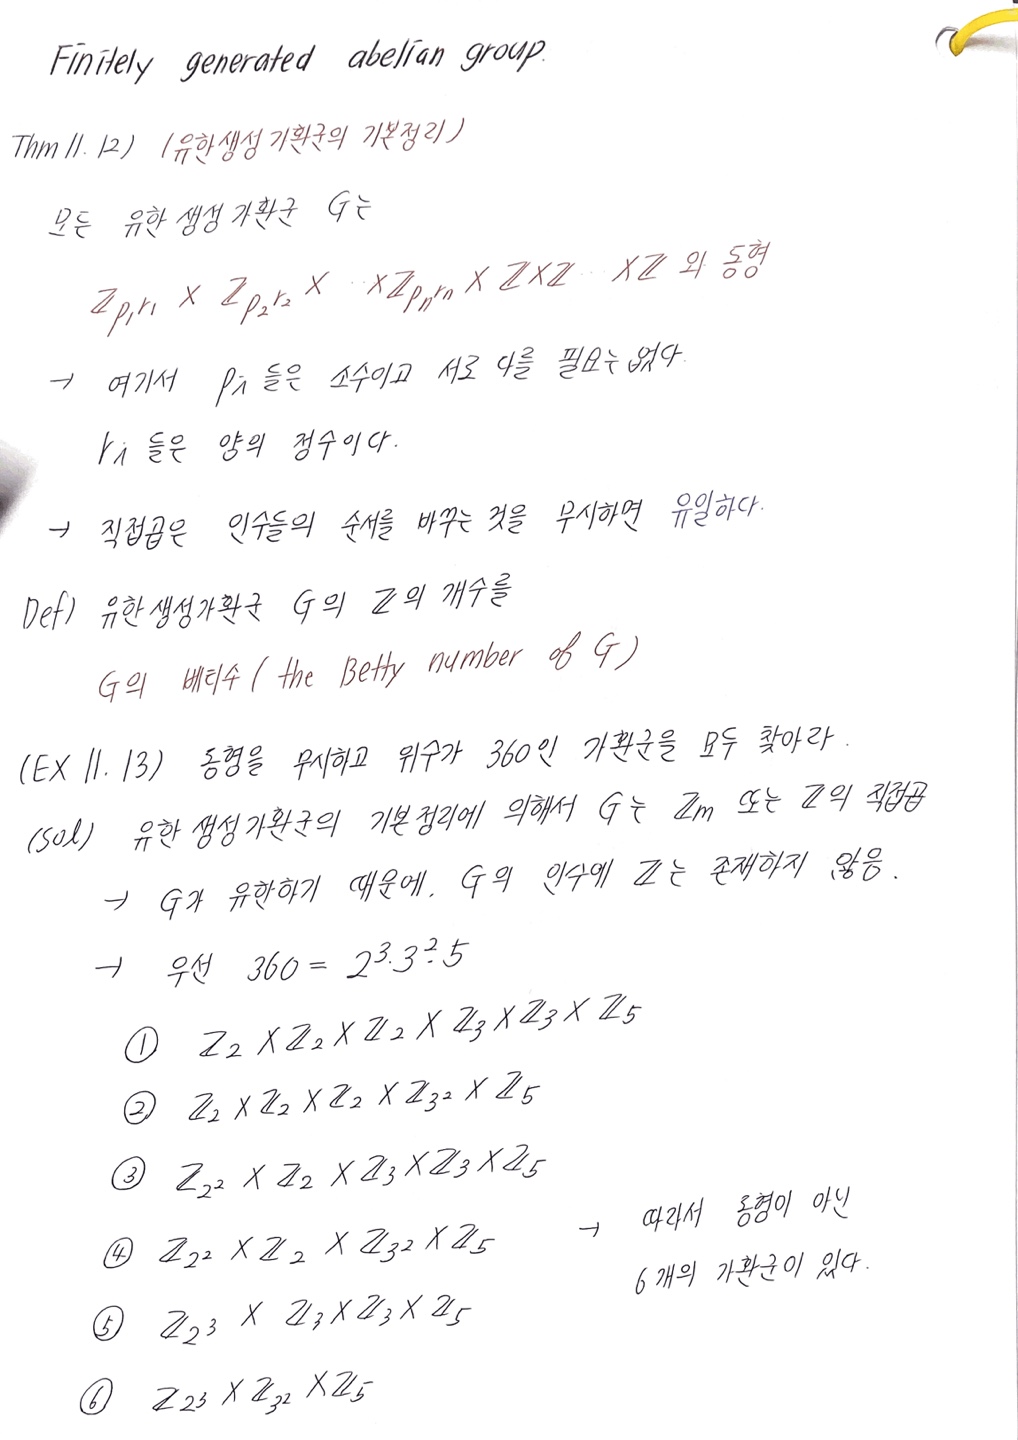 Finitely generated abelian group.
Thm 11.12) (유한생성 가환군의 기본정리)
모든 유한 생성 가환군 G는
ℤp₁r₁ × ℤp₂r₂ × ·· ×ℤpₙrₙ × ℤ×ℤ ·· ×ℤ 와 동형
→ 여기서 pᵢ 들은 소수이고 서로 다를 필요는 없다.
rᵢ 들은 양의 정수이다.
→ 직접곱은 인수들의 순서를 바꾸는 것을 무시하면 유일하다.
Def) 유한생성가환군 G의 ℤ의 개수를
G의 베티수 ( the Betty number of G)
(EX 11.13) 동형을 무시하고 위수가 360인 가환군을 모두 찾아라.
(sol) 유한 생성 가환군의 기본정리에 의해서 G는 ℤm 또는 ℤ의 직접곱
→ G가 유한하기 때문에, G의 인수에 ℤ는 존재하지 않음.
→ 우선 360 = 2³·3²·5
① ℤ₂ × ℤ₂ × ℤ₂ × ℤ₃ × ℤ₃ × ℤ₅
② ℤ₂ × ℤ₂ × ℤ₂ × ℤ₃² × ℤ₅
③ ℤ₂² × ℤ₂ × ℤ₃ × ℤ₃ × ℤ₅
④ ℤ₂² × ℤ₂ × ℤ₃² × ℤ₅
→ 따라서 동형이 아닌
6개의 가환군이 있다.
⑤ ℤ₂³ × ℤ₃ × ℤ₃ × ℤ₅
⑥ ℤ₂³ × ℤ₃² × ℤ₅